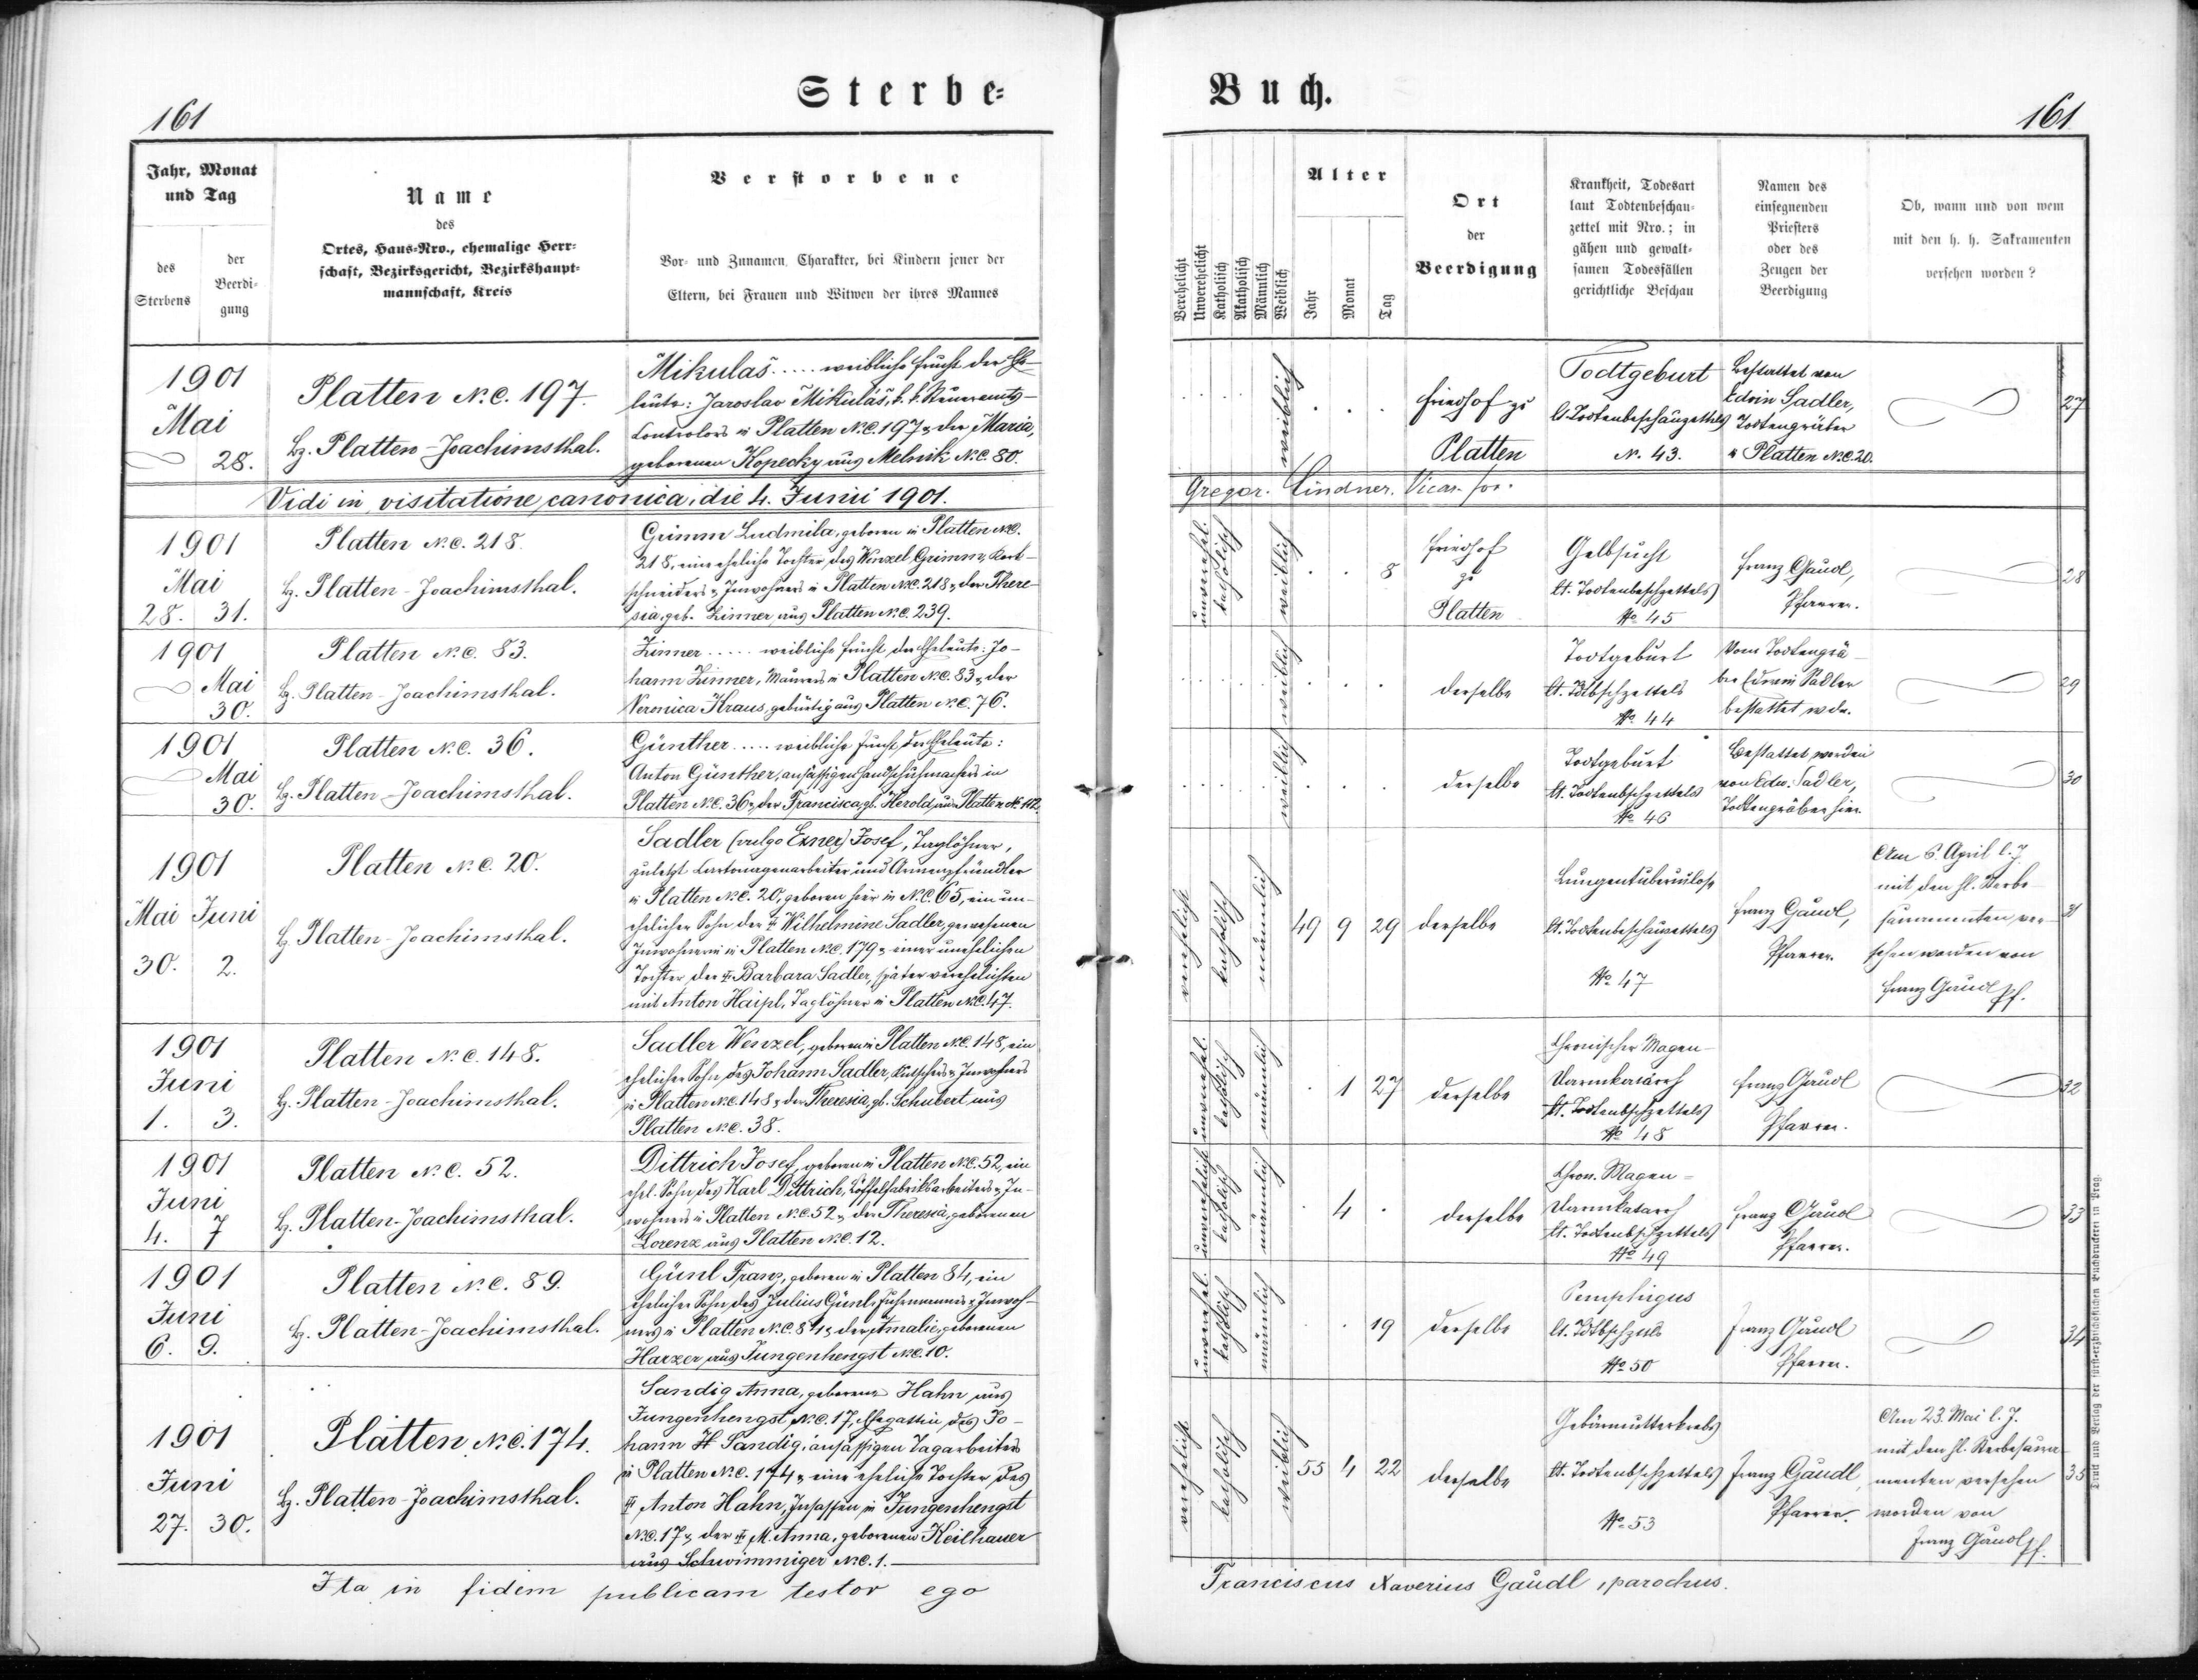 Sterbe-
161
Jahr, Monat
und Tag
des
Sterbens
der
Beerdi-
gung
Name
des
Ortes, Haus-Nro., ehemalige Herr-
schaft, Bezirksgericht, Bezirkshaupt-
mannschaft, Kreis
Verstorbene
Vor- und Zunamen, Charakter, bei Kindern jener der
Eltern, bei Frauen und Witwen der ihres Mannes
1901
Mai
28.
Platten N.C. 197.
Bz. Platten-Joachimsthal.
Mikulaš ..... weibliche Frucht der Ehe-
leute: Jaroslav Mikuláš, k. k. Steueramts-
Controlors in Platten N.C. 197 u. der Maria,
geborenen Kopecky aus Melnik N.C. 80.
Vidi in visitatione canonica, die 4. Junii 1901.
1901
Mai
28. 31.
Platten N.C. 218.
Bz. Platten-Joachimsthal.
Grimm Ludmila, geboren in Platten N.C.
218, eine eheliche Tochter des Wenzel Grimm,
schneiders u. Inwohners in Platten N.C. 218 u. der There-
sia, geb. Zinner aus Platten N.C. 239.
1901
Mai
30.
Platten N.C. 83.
Bz. Platten-Joachimsthal.
Zinner ..... weibliche Frucht der Eheleute: Jo-
hann Zinner, Maurers in Platten N.C. 83 u. der
Veronica Kraus, gebürtig aus Platten N.C. 76.
1901
Mai
30.
Platten N.C. 36.
Bz. Platten-Joachimsthal.
Günther ..... weibliche Frucht der Eheleute:
Anton Günther, ansässigen Handschuhmachers in
Platten N.C. 36 u. der Francisca, gb. Herold aus Platten N. 112.
1901
Mai Juni
30. 2.
Platten N.C. 20.
Bz. Platten-Joachimsthal.
Sadler (vulgo Exner) Josef, Taglöhner,
zuletzt Cartonagenarbeiter und Armenpfründler
in Platten N.C. 20, geboren hier in N.C. 65, ein un-
ehelicher Sohn der † Wilhelmine Sadler, gewesenen
Inwohnerin in Platten N.C. 179 u. einer unehelichen
Tochter der † Barbara Sadler, später verehelichten
mit Anton Haipl, Taglöhner in Platten N.C. 47.
1901
Juni
1. 3.
Platten N.C. 148.
Bz. Platten-Joachimsthal.
Sadler Wenzel, geboren in Platten N.C. 148, ein
ehelicher Sohn des Johann Sadler, Kutschers u. Inwohners
in Platten N.C. 148 u. der Theresia, gb. Schubert aus
Platten N.C. 38.
1901
Juni
4. 7
Platten N.C. 52.
Bz. Platten-Joachimsthal.
Dittrich Josef, geboren in Platten N.C. 52, ein
ehel. Sohn des Karl Dittrich, Löffelfabriksarbeiters u. In-
wohners in Platten N.C. 52 u. der Theresia, geborenen
Lorenz aus Platten N.C. 12.
1901
Juni
6. 9.
Platten N.C. 89.
Bz. Platten-Joachimsthal.
Günl Franz, geboren in Platten 84, ein
ehelicher Sohn des Julius Günl, Fuhrmannes u. Inwoh-
ners in Platten N.C. 84 u. der Amalie, geborenen
Harzer aus Jungenhengst N.C. 10.
1901
Juni
27. 30.
Platten N.C. 174.
Bz. Platten-Joachimsthal.
Sandig Anna, geborene Hahn aus
Jungenhengst N.C. 17, Ehegattin des Jo-
hann Sandig, ansässigen Tagarbeiters
in Platten N.C. 174 u. eine eheliche Tochter des
† Anton Hahn, Insassen in Jungenhengst
N.C. 17 u. der † M. Anna, geborenen Keilhauer
aus Schwimmiger N.C. 1.
Ita in fidem publicam testor ego
Buch.
161
Verehelicht
Unverehelicht
Katholisch
Akatholisch
Männlich
Weiblich
Alter
Jahr
Monat
Tag
Ort
der
Beerdigung
Krankheit, Todesart
laut Todtenbeschau-
zettel mit Nro.; in
gähen und gewalt-
samen Todesfällen
gerichtliche Beschau
Namen des
einsegnenden
Priesters
oder des
Zeugen der
Beerdigung
Ob, wann und von wem
mit den h. h. Sakramenten
versehen worden?
weiblich
Friedhof zu
Platten
Todtgeburt
lt. Todtenbeschauzettels
N. 43.
Bestattet von
Edvin Sadler,
Todtengräber
in Platten N.C. 20.
27
Gregor. Lindner. Vicar. for.
unverehel.
katholisch
weiblich
8
Friedhof
zu
Platten
Gelbsucht
lt. Todtenbeschzettels
No. 45
Franz Gaudl,
Pfarrer.
28
weiblich
derselbe
Todtgeburt
lt. Tdtbschzettels
No. 44
Vom Todtengrä-
ber Edwin Sadler
bestattet wdn.
29
weiblich
derselbe
Todtgeburt
lt. Todtenbschzettels
No. 46
Bestattet worden
von Edw. Sadler,
Todtengräber hier.
30
verehelicht
katholisch
männlich
49 9 29
derselbe
Lungentuberculose
lt. Todtenbeschauzettels
No. 47
Franz Gaudl,
Pfarrer.
Am 6. April l. J.
mit den hl. Sterbe-
sacramenten ver-
sehen worden von
Franz Gaudl Pf.
31
unverehel.
katholisch
männlich
1 27
derselbe
Chronischer Magen-
Darmkatarrh
lt. Todtenbschzettels
No. 48
Franz Gaudl
Pfarrer.
32
unverehelicht
katholisch
männlich
4
derselbe
Chron. Magen-
Darmkatarrh
lt. Todtenbschzettels
No. 49
Franz Gaudl
Pfarrer.
33
unverehel.
katholisch
männlich
19
derselbe
Pemphigus
No. 50
Franz Gaudl
Pfarrer.
34
verehelicht
katholisch
weiblich
55 4 22
derselbe
Gebärmutterkrebs
lt. Todtenbschzettels
No. 53
Franz Gaudl,
Pfarrer.
Am 23. Mai l. J.
mit den hl. Sterbesacra-
menten versehen
worden von
Franz Gaudl Pf.
35
Druck und Verlag der fürst-erzbischöflichen Buchdruckerei in Prag.
Franciscus Xaverius Gaudl, parochus.